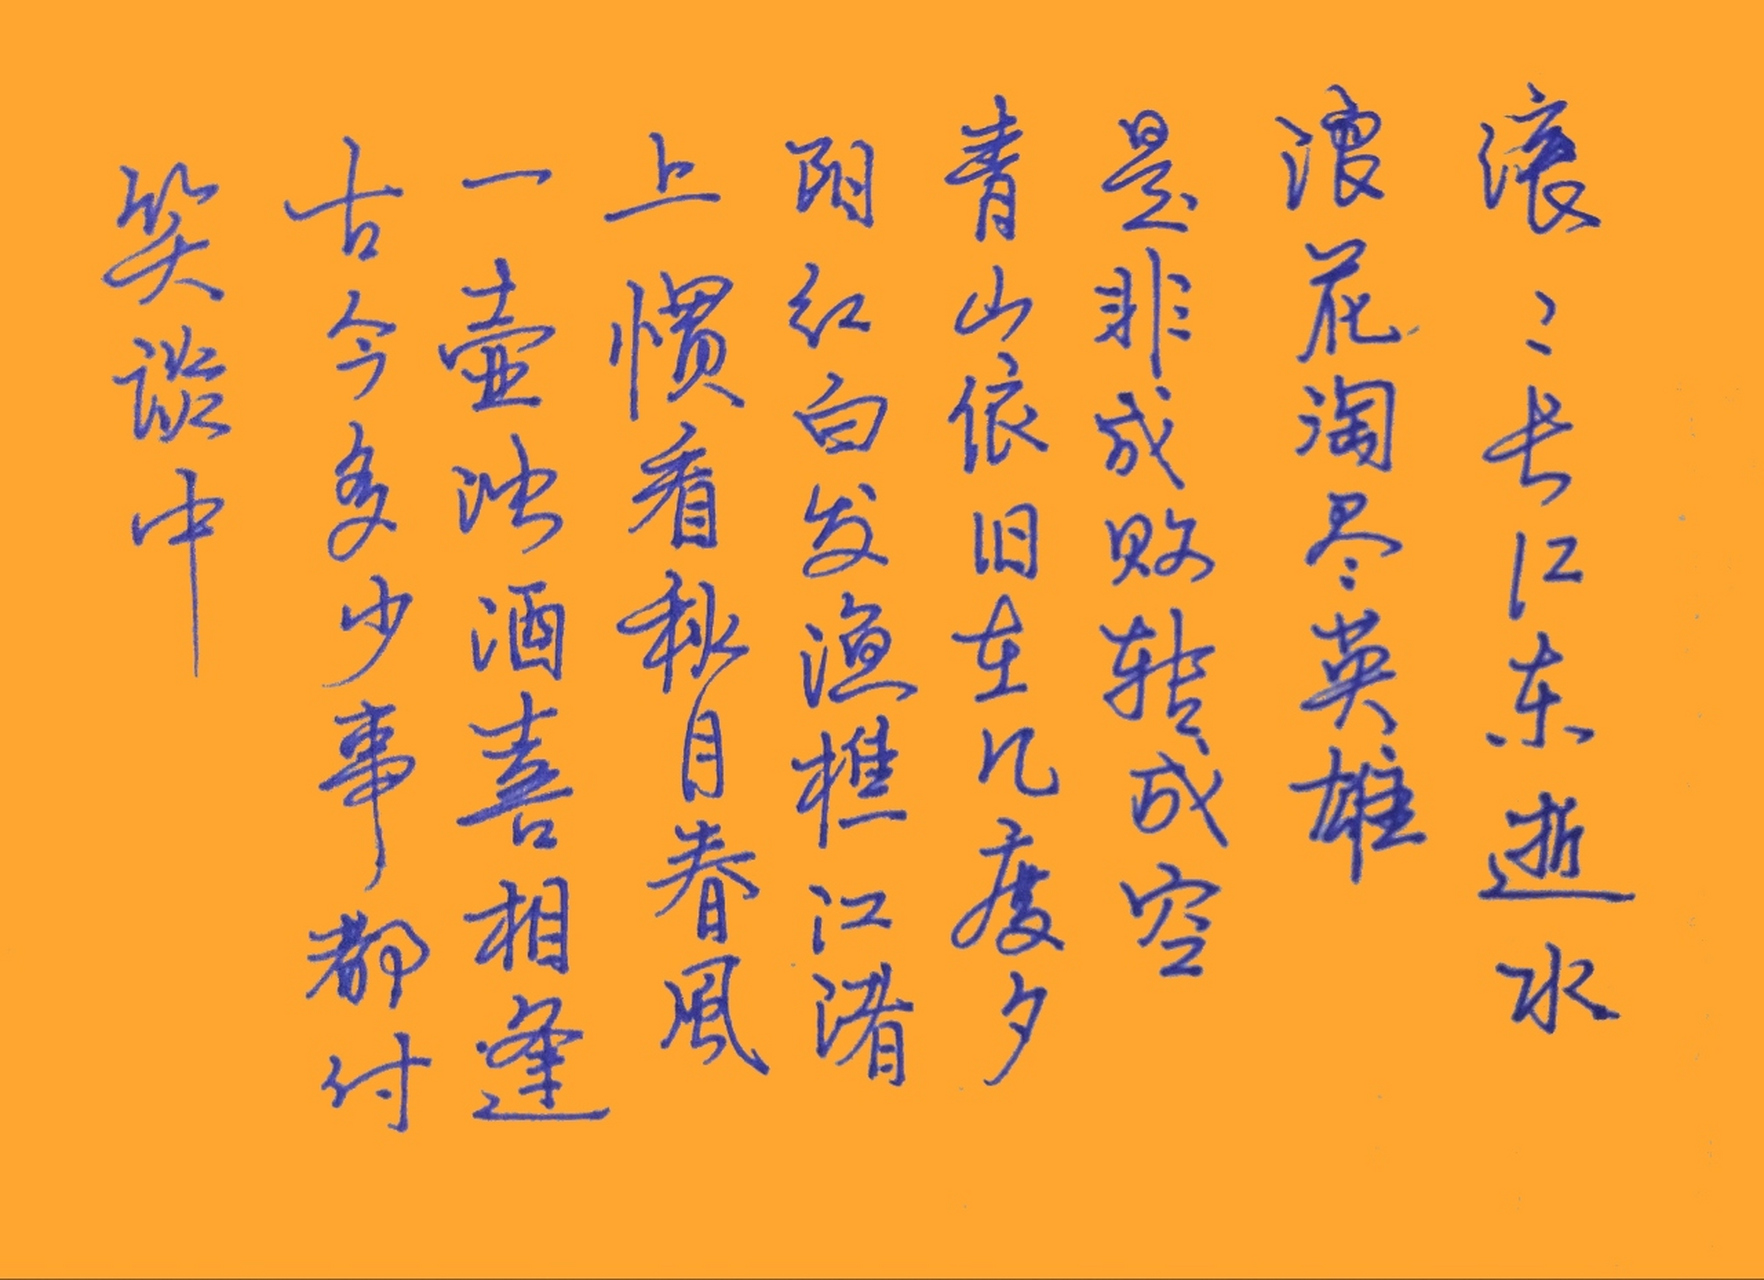 滚〻长江东逝水
浪花淘尽英雄
是非成败转成空
青山依旧在几度夕
阳红白发渔樵江渚
上惯看秋月春風
一壶浊酒喜相逢
古今多少事都付
笑谈中